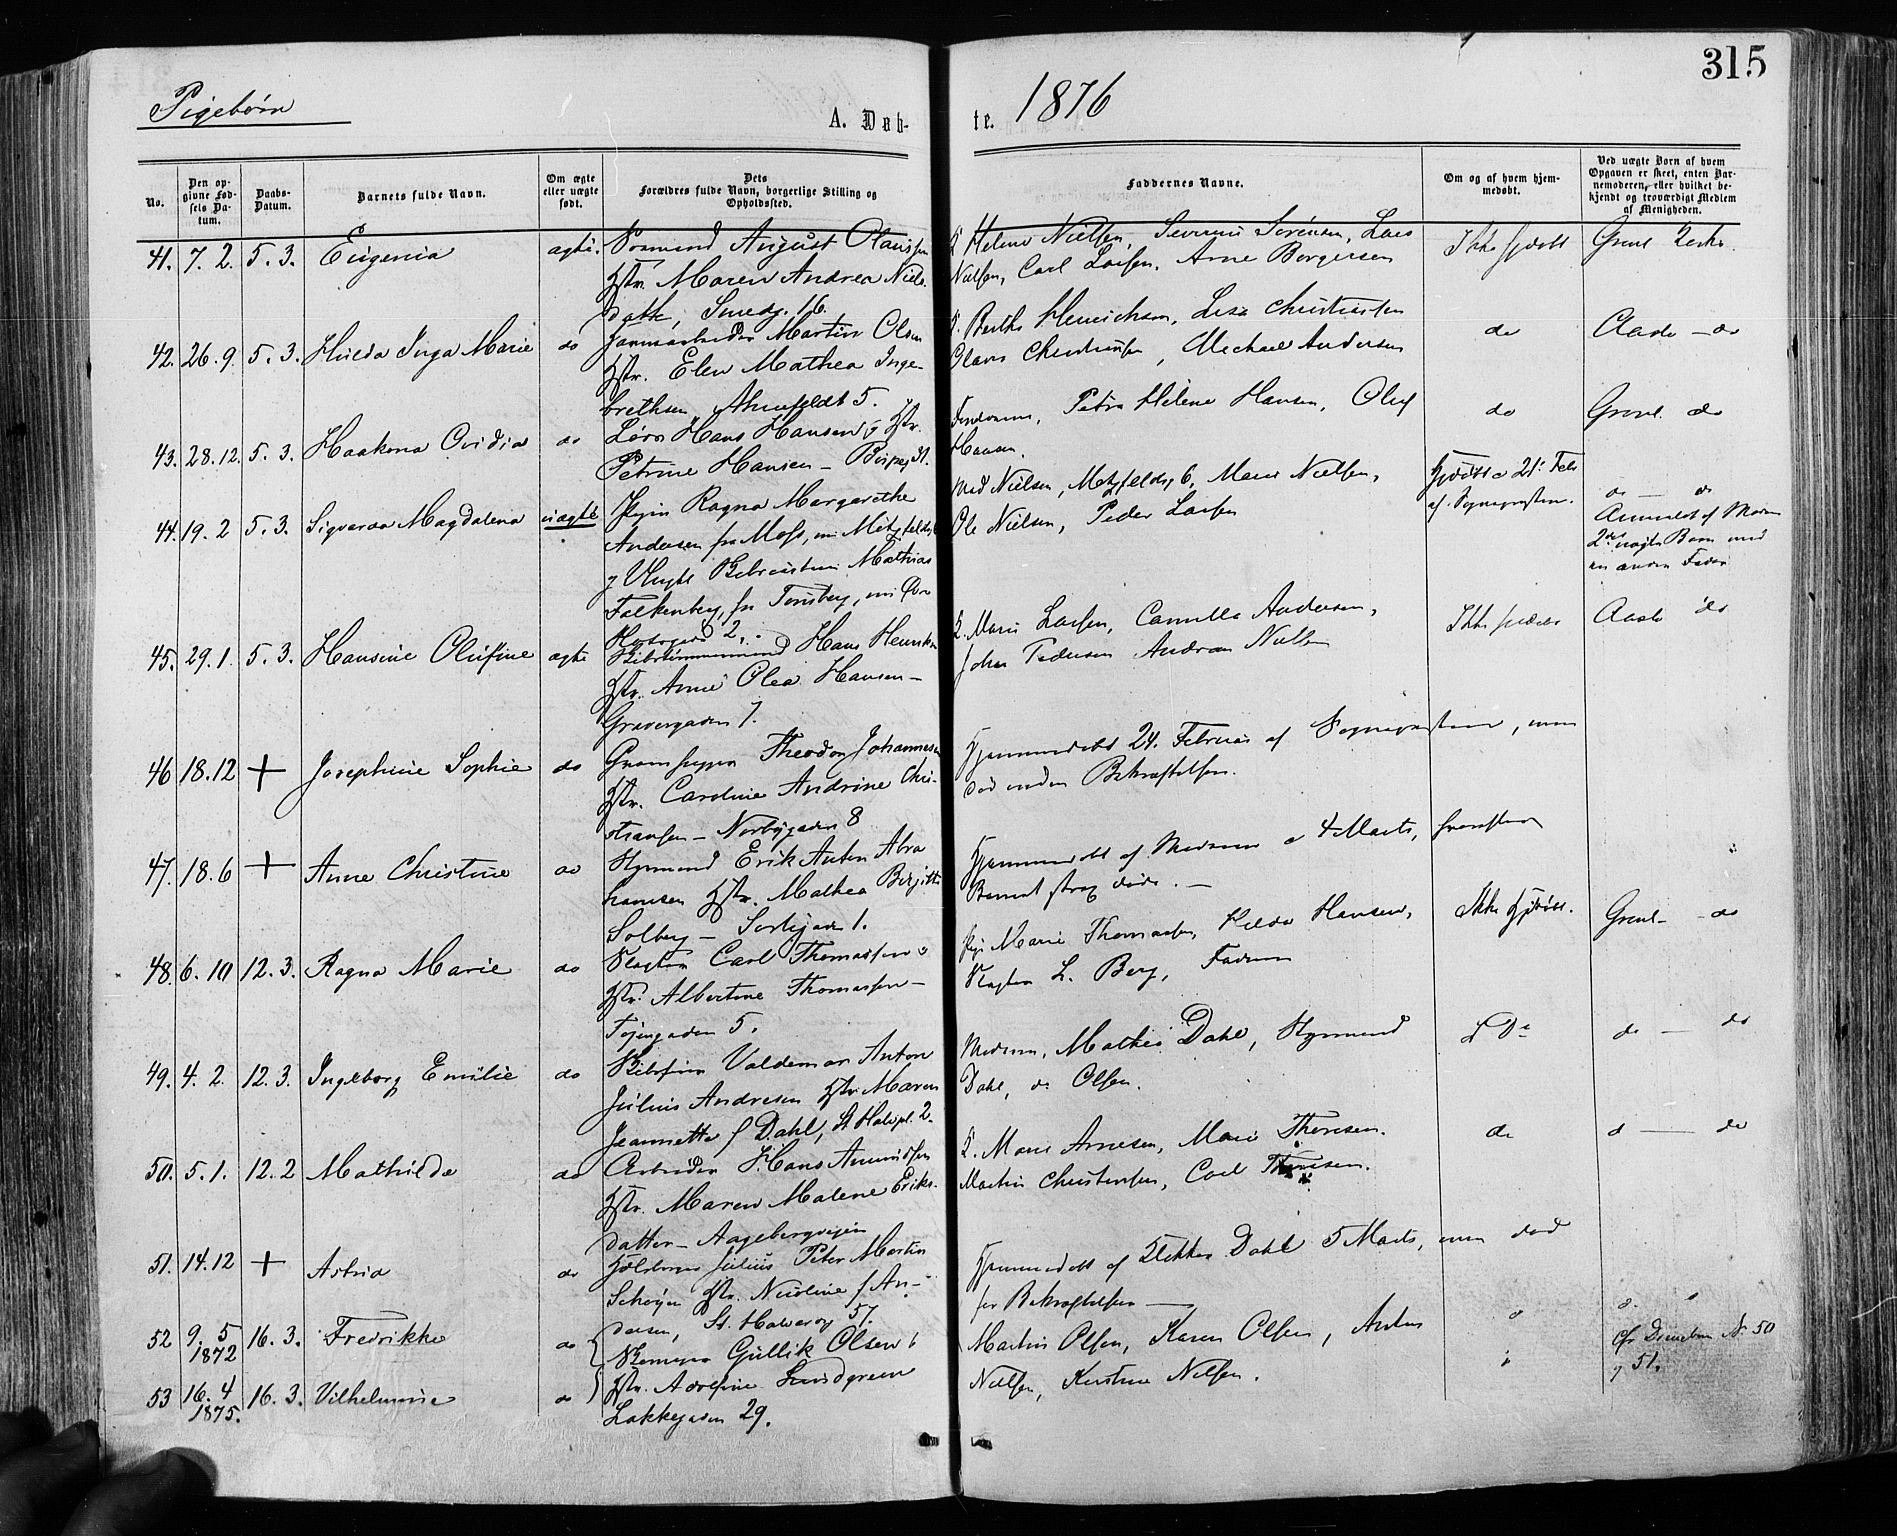 315
Pigebørn
A. Døb-
te.
1876
No.
Den op-
givne Fød-
sels Da-
tum.
Daabs-
Datum.
Barnets fulde Navn.
Om ægte
eller uægte
født.
Dets
Forældres fulde Navn, borgerlige Stilling og
Opholdssted.
Faddernes Navne.
Om og af hvem hjem-
medøbt.
Ved uægte Børn af hvem
Opgaven er skeet, enten Bar-
nemoderen, eller hvilket be-
kjendt og troværdigt Medlem
af Menigheden.
41. 7. 2. 5. 3. Eugenia ægte. August Olaussen
Hstr. Maren Andrea Niels-
datt, Smedg. 16.
Helene Nielsen, Severine Sørensen, Lars
Nielsen, Carl Larsen, Arne Borgersen
Ikke hjdøbt
Grønl. Kirke.
42. 26. 9. 5. 3. Hulda Inga Marie do Jernarbeider Martin Olsen
Hstr. Elen Mathea Inge-
brethsen, Ahnefeldt 5.
K. Berthe Henrichsen, Lise Christiansen
Olaus Christensen, Michael Andersen
do
Aasl. – do
43. 28. 12. 5. 3. Haakona Ovidia do Hans Hansen, Hstr.
Petrine Hansen – Bispeg 31.
Petra Helene Hansen, Oluf
Hansen.
do
Grønl. do
44. 19. 2 5. 3. Sigvarda Magdalena uægte Pigen Ragna Margarethe
Andersen fra Moss, Metzfeldtsg
Mathias
Falkenberg, fra Tønsberg,
2.
Md Nielsen, Metzfeldtsg 6, Marie Nielsen,
Ole Nielsen, Peder Larsen
Hjdøbt d 21. Feb
af Sognepresten.
do – do
Anmeldt af Moderen
2det uægte Barn med
en anden Fader
45. 29. 1. 5. 3. Hansine Olufine ægte Hans Henriksen
Hstr. Anne Olea Hansen –
Grøvergaden 7.
K. Marie Larsen, Camilla Andersen,
Johan Pedersen Andreas Nielsen
Ikke hjdøbt
Aasl. do
46 18. 12 + Josephine Sophie do Theodor Johannesen
Hstr. Caroline Andrine Chri-
stiansen – Norbygaden 8
Hjemmedøbt 24. Februar af Sognepresten, men
død inden Bekræftelsen.
47. 18. 6 + Anne Christine do Styrmand Erik Anton Abra
hamsen Hstr. Mathea Birgitte
Solberg – 1.
Hjemmedøbt af Moderen d 4 Marts, hvorefter
Barnet strax døde. –
48. 6. 10 12. 3. Ragna Marie do Slagter Carl Thomassen
Hstr. Albertine Thomassen –
Tøiengaden 5.
Pige Marie Thomassen, Hilda Hansen,
Slagter L. Berg, Faderen
Ikke hjdøbt.
Grønl – do
49. 4. 2. 12. 3. Ingeborg Emilie do Valdemar Anton
Julius Andresen Hstr Maren
Jeannette f Dahl, St. Halvpl. 2.
Moderen, Mathea Dahl, Styrmand
Dahl, do Olsen.
do
do – do
50. 5. 1. 12. 2 Mathilde do Arbeider Hans Amundsen
Hstr. Maren Malene Eriks-
datter – Aagebergveien
K. Marie Arnesen, Marie Thoresen.
Martin Christensen, Carl Thoresen.
do
do – do
51. 14. 12 + Astrid do Julius Peter Martin
Schøyen Hstr. Nicoline f An-
dersen, St. Halvardsg 57.
Hjemmedøbt af Klokker Dahl 5 Marts, men død
før Bekræftelsen –
52 9. 5
1872 16. 3. Fredrikke do Gullik Olsen
53 16. 4
1875. 16. 3. Vilhelmine do Hstr. Adolfine Lindgreen
Lakkegaden 29.
Martin Olsen, Karen Olsen, Anton
Nielsen, Kirstine Nielsen.
Cfr Drengebørn No. 50
og 51.